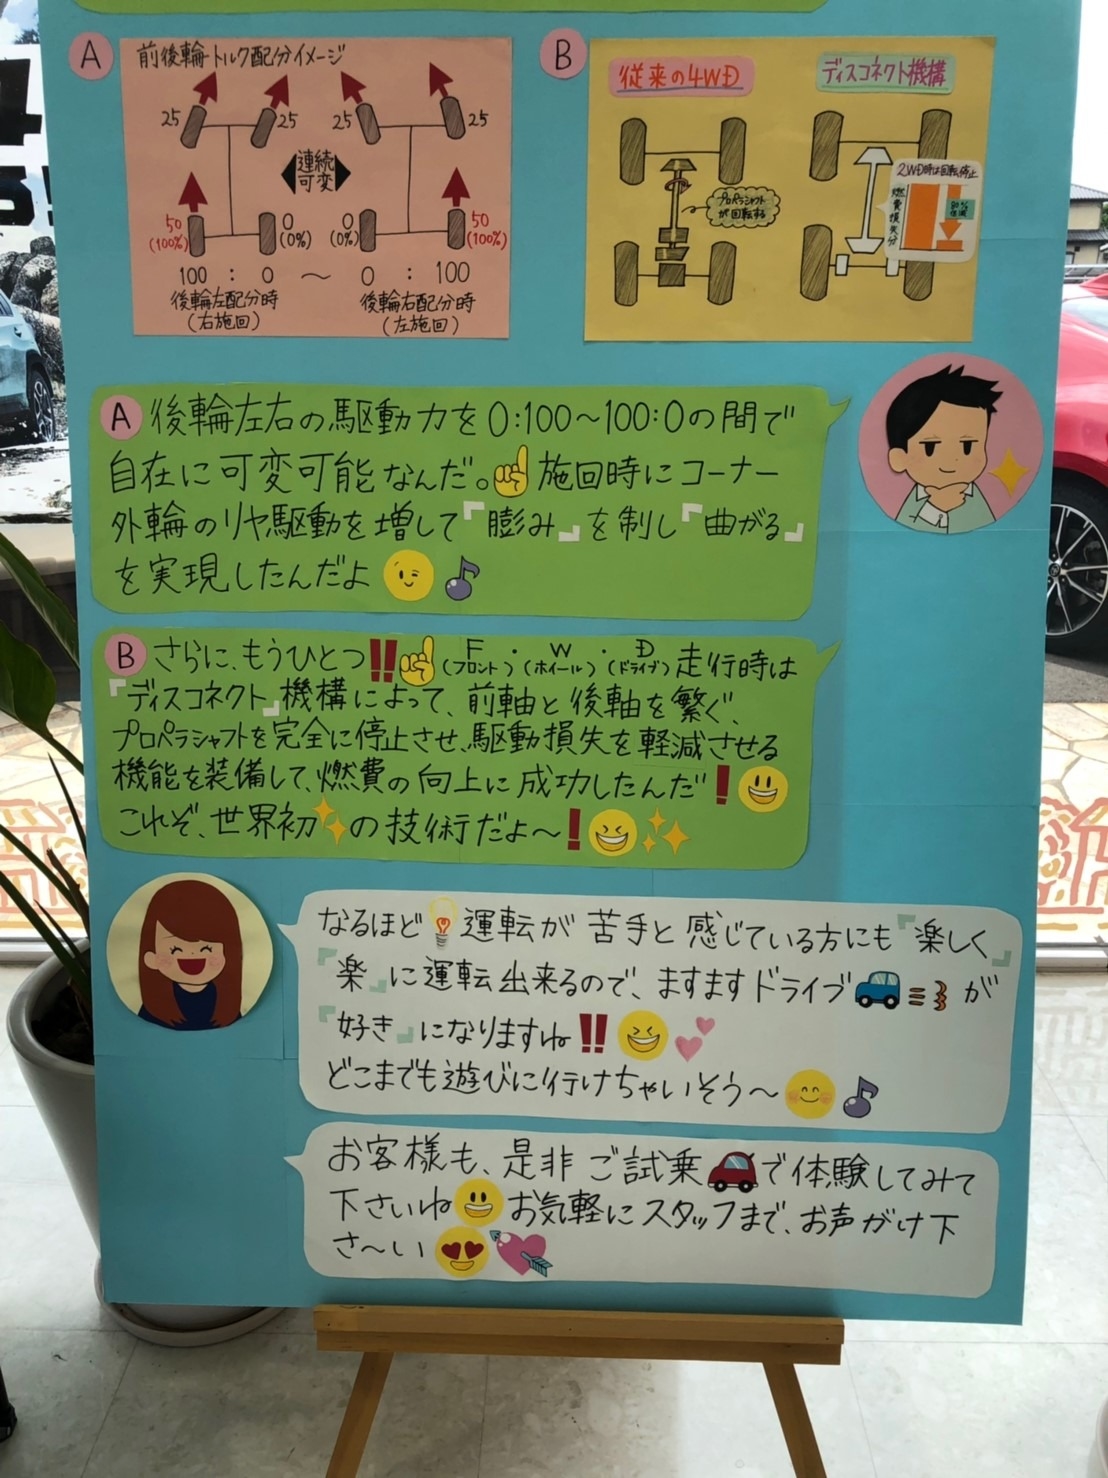 A
前後輪トルク配分イメージ
25 25 25 25
連続
可変
50
(100%)
0
(0%)
0
(0%)
50
(100%)
100 : 0 ～ 0 : 100
後輪左配分時
(右施回)
後輪右配分時
(左施回)
B
従来の4WD
ディスコネクト機構
プロペラシャフト
が回転する
2WD時は回転停止
燃費損失分
A 後輪左右の駆動力を0:100～100:0の間で
自在に可変可能なんだ。施回時にコーナー
外輪のリヤ駆動を増して『膨み』を制し『曲がる』
を実現したんだよ
B さらに、もうひとつ!! F・W・D
(フロント)(ホイール)(ドライブ)走行時は
『ディスコネクト』機構によって、前軸と後軸を繁ぐ、
プロペラシャフトを完全に停止させ、駆動損失を軽減させる
機能を装備して、燃費の向上に成功したんだ!
これぞ、世界初の技術だよ～!
なるほど運転が苦手と感じている方にも『楽しく』
『楽』に運転出来るので、ますますドライブが
『好き』になりますね!!
どこまでも遊びに行けちゃいそう～
お客様も、是非ご試乗で体験してみて
下さいねお気軽にスタッフまで、お声がけ下
さ～い